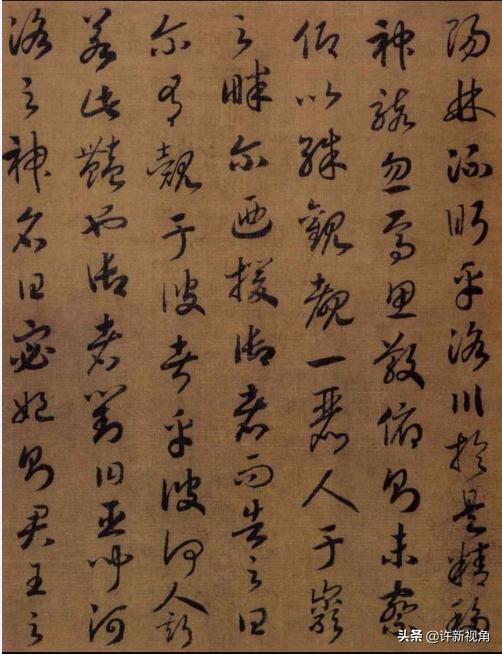 陽林流眄乎洛川於是精移
神駭忽焉思散俯則未察
仰以殊觀覩一麗人于巖
之畔尔迺援御者而告之曰
尔有覿于彼者乎彼何人斯
若此豔也御者對曰臣聞河
洛之神名曰宓妃則君王之
头条 @许新视角